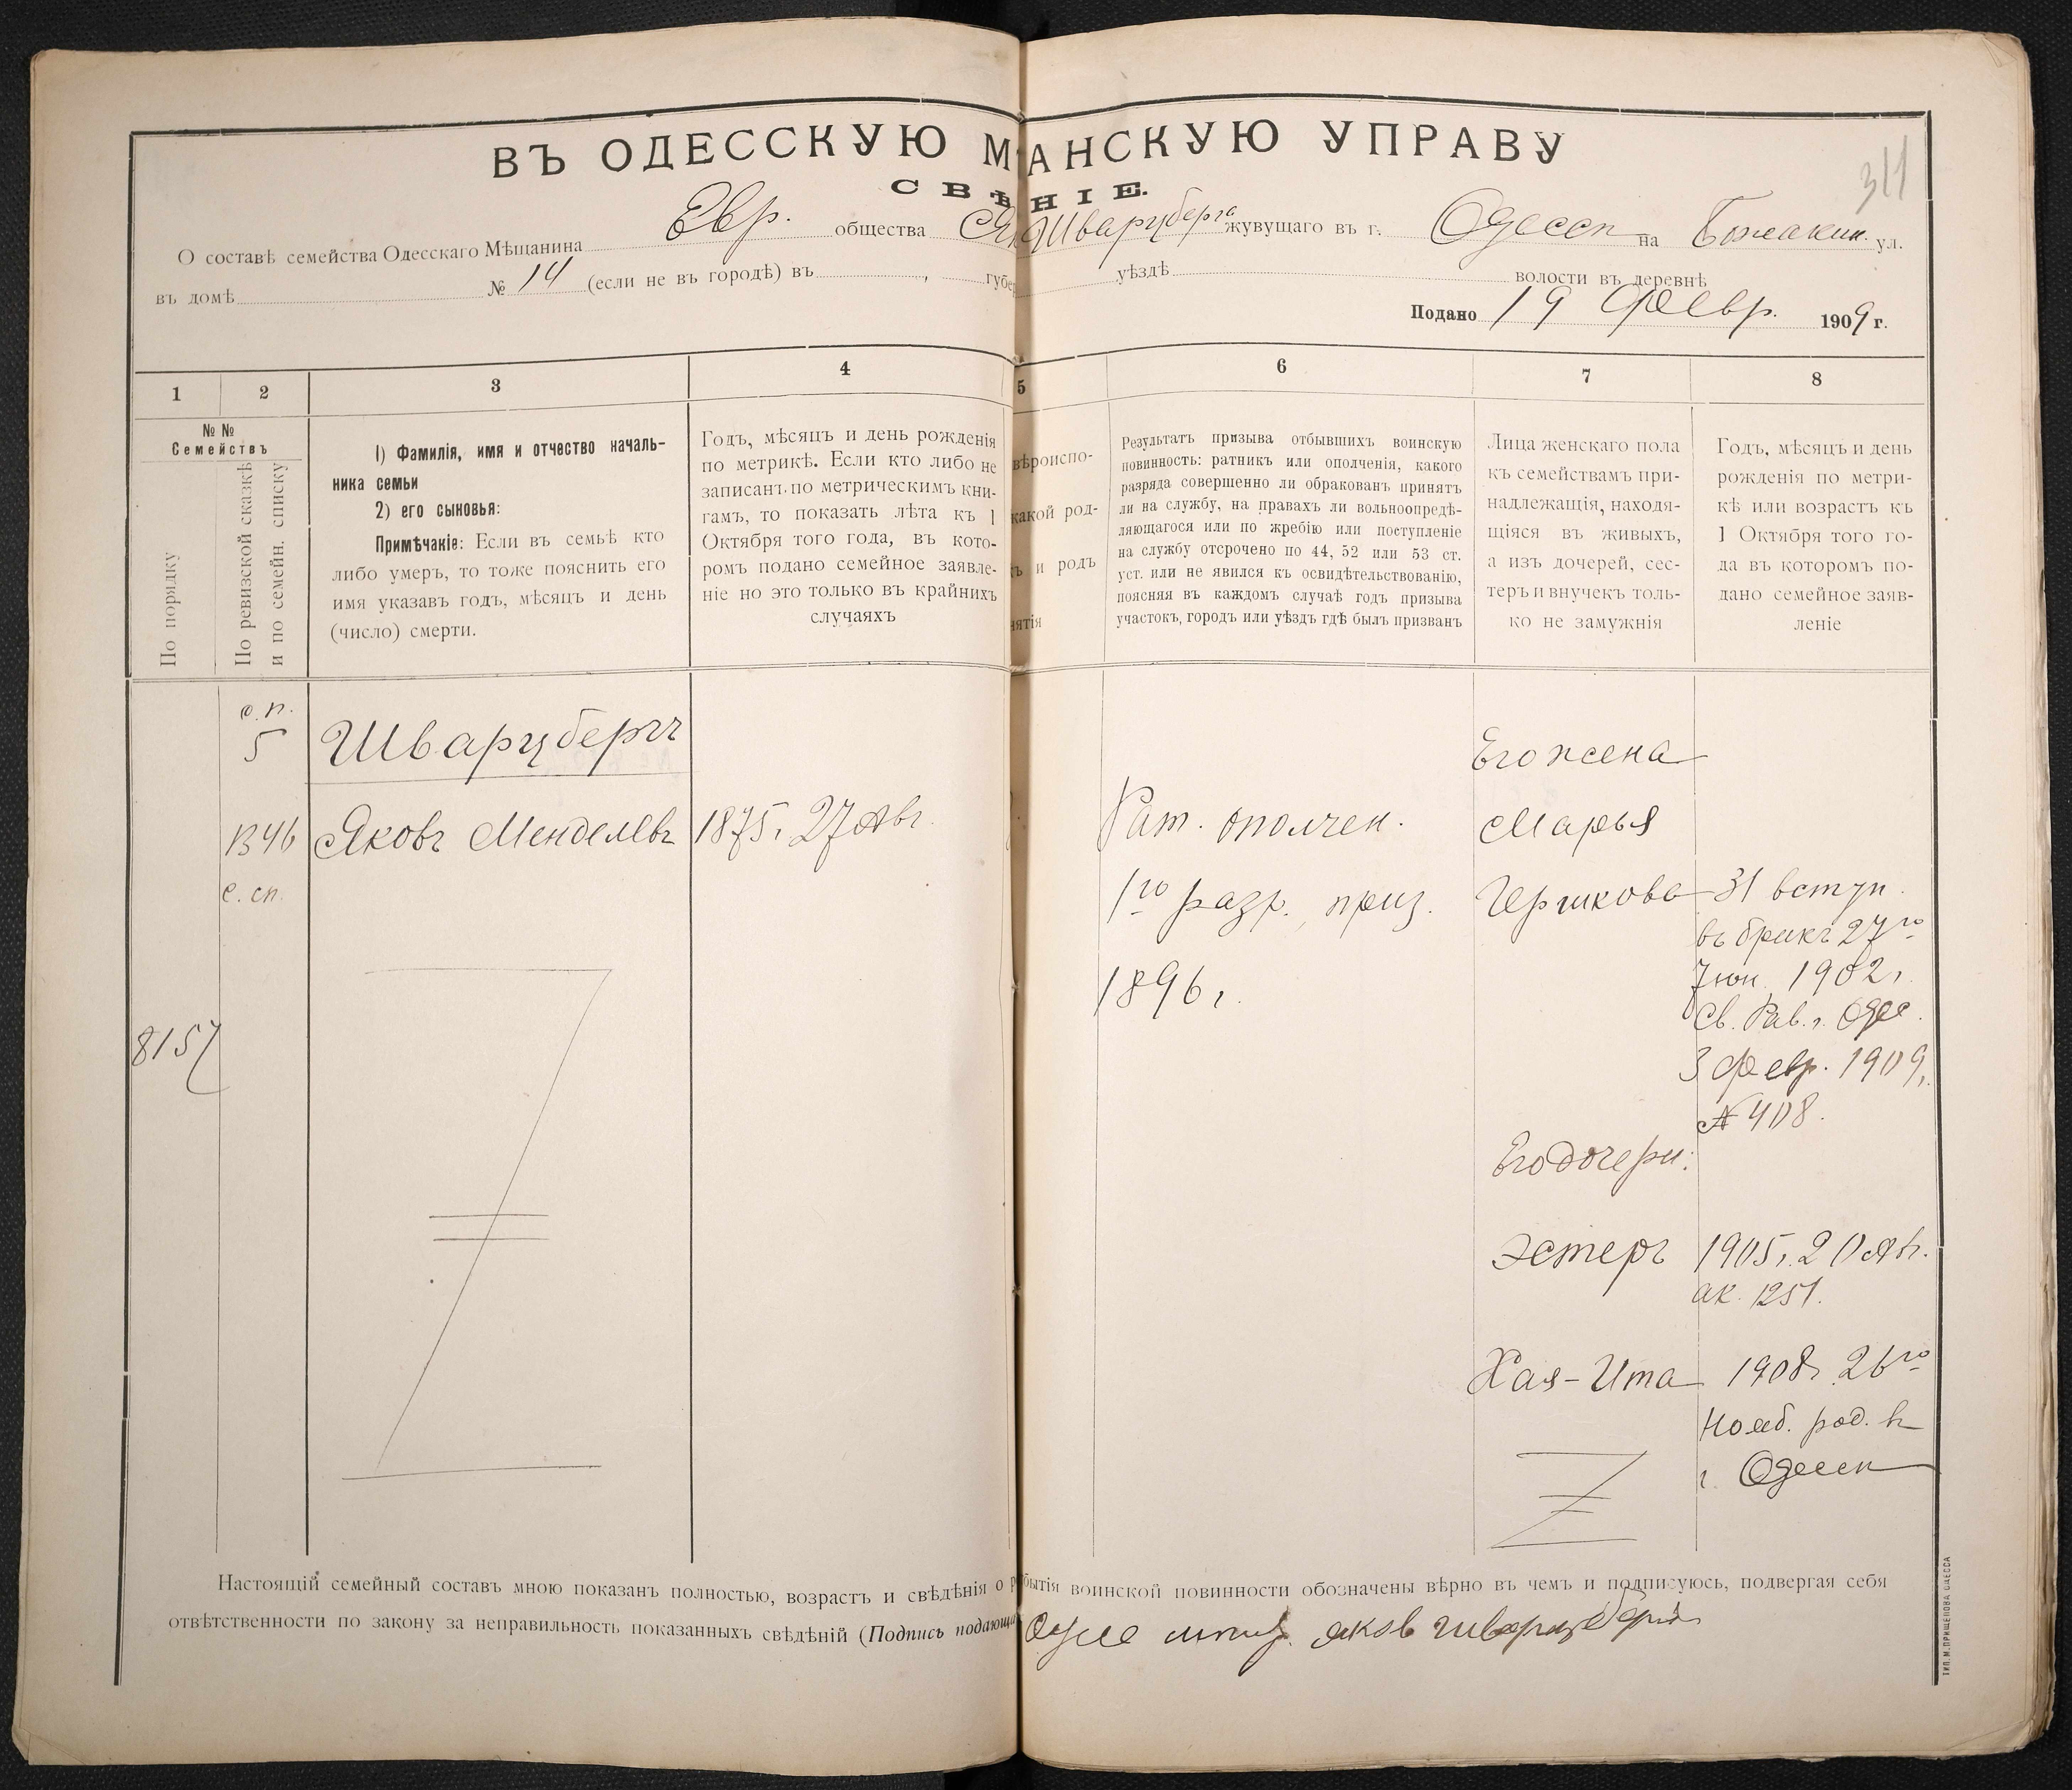 311
ВЪ ОДЕССКУЮ М АНСКУЮ УПРАВУ
СВѢ НІЕ.
О составѣ семейства Одесскаго Мѣщанина Евр. общества Як Шварцберга жувущаго въ г. Одессѣ на ул.
въ домѣ № 14 (если не въ городѣ) въ , губе уѣздѣ волости въ деревнѣ
Подано 19 Февр. 1909 г.
1 2 3 4 5 6 7 8
№ №
Семействъ
По порядку
По ревизской сказкѣ
и по семейн. списку
1) Фамилія, имя и отчество началь-
ника семьи
2) его сыновья:
Примѣчакіе: Если въ семьѣ кто
либо умеръ, то тоже пояснить его
имя указавъ годъ, мѣсяцъ и день
(число) смерти.
Годъ, мѣсяцъ и день рожденія
по метрикѣ. Если кто либо не
записанъ по метрическимъ кни-
гамъ, то показать лѣта къ 1
Октября того года, въ кото-
ромъ подано семейное заявле-
ніе но это только въ крайнихъ
случаяхъ
вѣроиспо-
какой род-
ъ и родъ
нятія
Результатъ призыва отбывшихъ воинскую
повинность: ратникъ или ополченія, какого
разряда совершенно ли обракованъ принятъ
ли на службу, на правахъ ли вольноопредѣ-
ляющагося или по жребію или поступленіе
на службу отсрочено по 44, 52 или 53 ст.
уст. или не явился къ освидѣтельствованію,
поясняя въ каждомъ случаѣ годъ призыва
участокъ, городъ или уѣздъ гдѣ былъ призванъ
Лица женскаго пола
къ семействамъ при-
надлежащія, находя-
щіяся въ живыхъ,
а изъ дочерей, сес-
теръ и внучекъ толь-
ко не замужнія
Годъ, мѣсяцъ и день
рожденія по метри-
кѣ или возрастъ къ
1 Октября того го-
да въ которомъ по-
дано семейное заяв-
леніе
8157
о. п.
5
1346
с. сп.
Шварцбергъ
Яковъ Менделевъ
1875 г. 27 Авг.
Рат. ополчен.
1го разр. приз.
1896 г.
Его жена
Марья
Гершкова
31 вступ.
въ бракъ 27го
Іюн. 1902 г.
Св. Рав. г. Одес.
3 Февр. 1909 г.
№ 408.
Его дочери:
Эстеръ
1905 г. 20 Авг.
ак. 1251.
Хая-Ита
1908 г. 26го
Нояб. род. въ
г. Одессѣ
Настоящій семейный составъ мною показанъ полностью, возрастъ и свѣдѣнія о р бытія воинской повинности обозначены вѣрно въ чемъ и подписуюсь, подвергая себя
отвѣтственности по закону за неправильность показанныхъ свѣдѣній (Подпись подающа яков шварцберг
ТИП. М. ПРИЩЕПОВА ОДЕССА